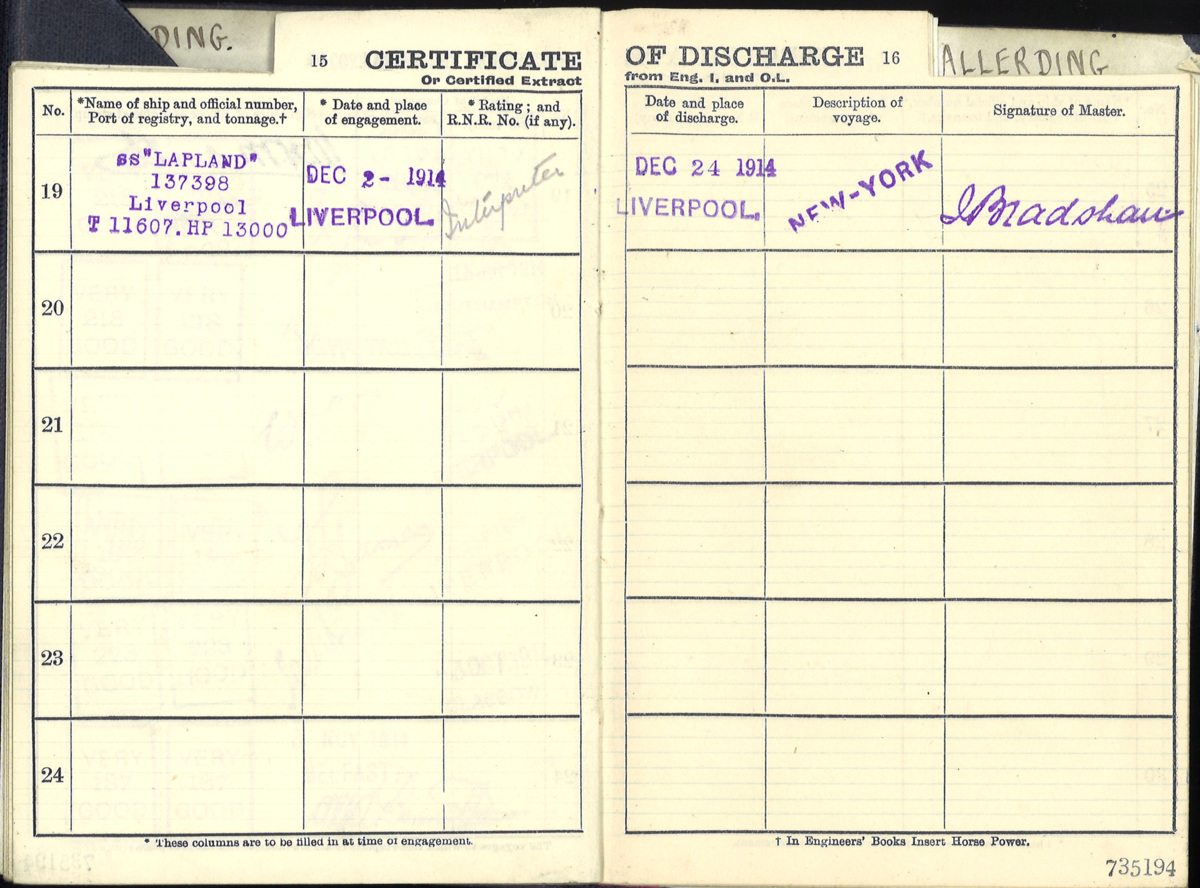 DING.
15 CERTIFICATE
Or Certified Extract
No.
*Name of ship and official number,
Port of registry, and tonnage.†
* Date and place
of engagement.
* Rating; and
R.N.R. No. (if any).
19
SS "LAPLAND"
137398
Liverpool
T 11607. HP 13000
DEC 2- 1914
LIVERPOOL.
Interpreter
20
21
22
23
24
* These columns are to be filled in at time of engagement.
OF DISCHARGE 16
from Eng. 1, and O.L.
ALLERDING
Date and place
of discharge.
Description of
voyage.
Signature of Master.
DEC 24 1914
LIVERPOOL.
NEW-YORK
J Bradshaw
† In Engineers' Books Insert Horse Power.
735194